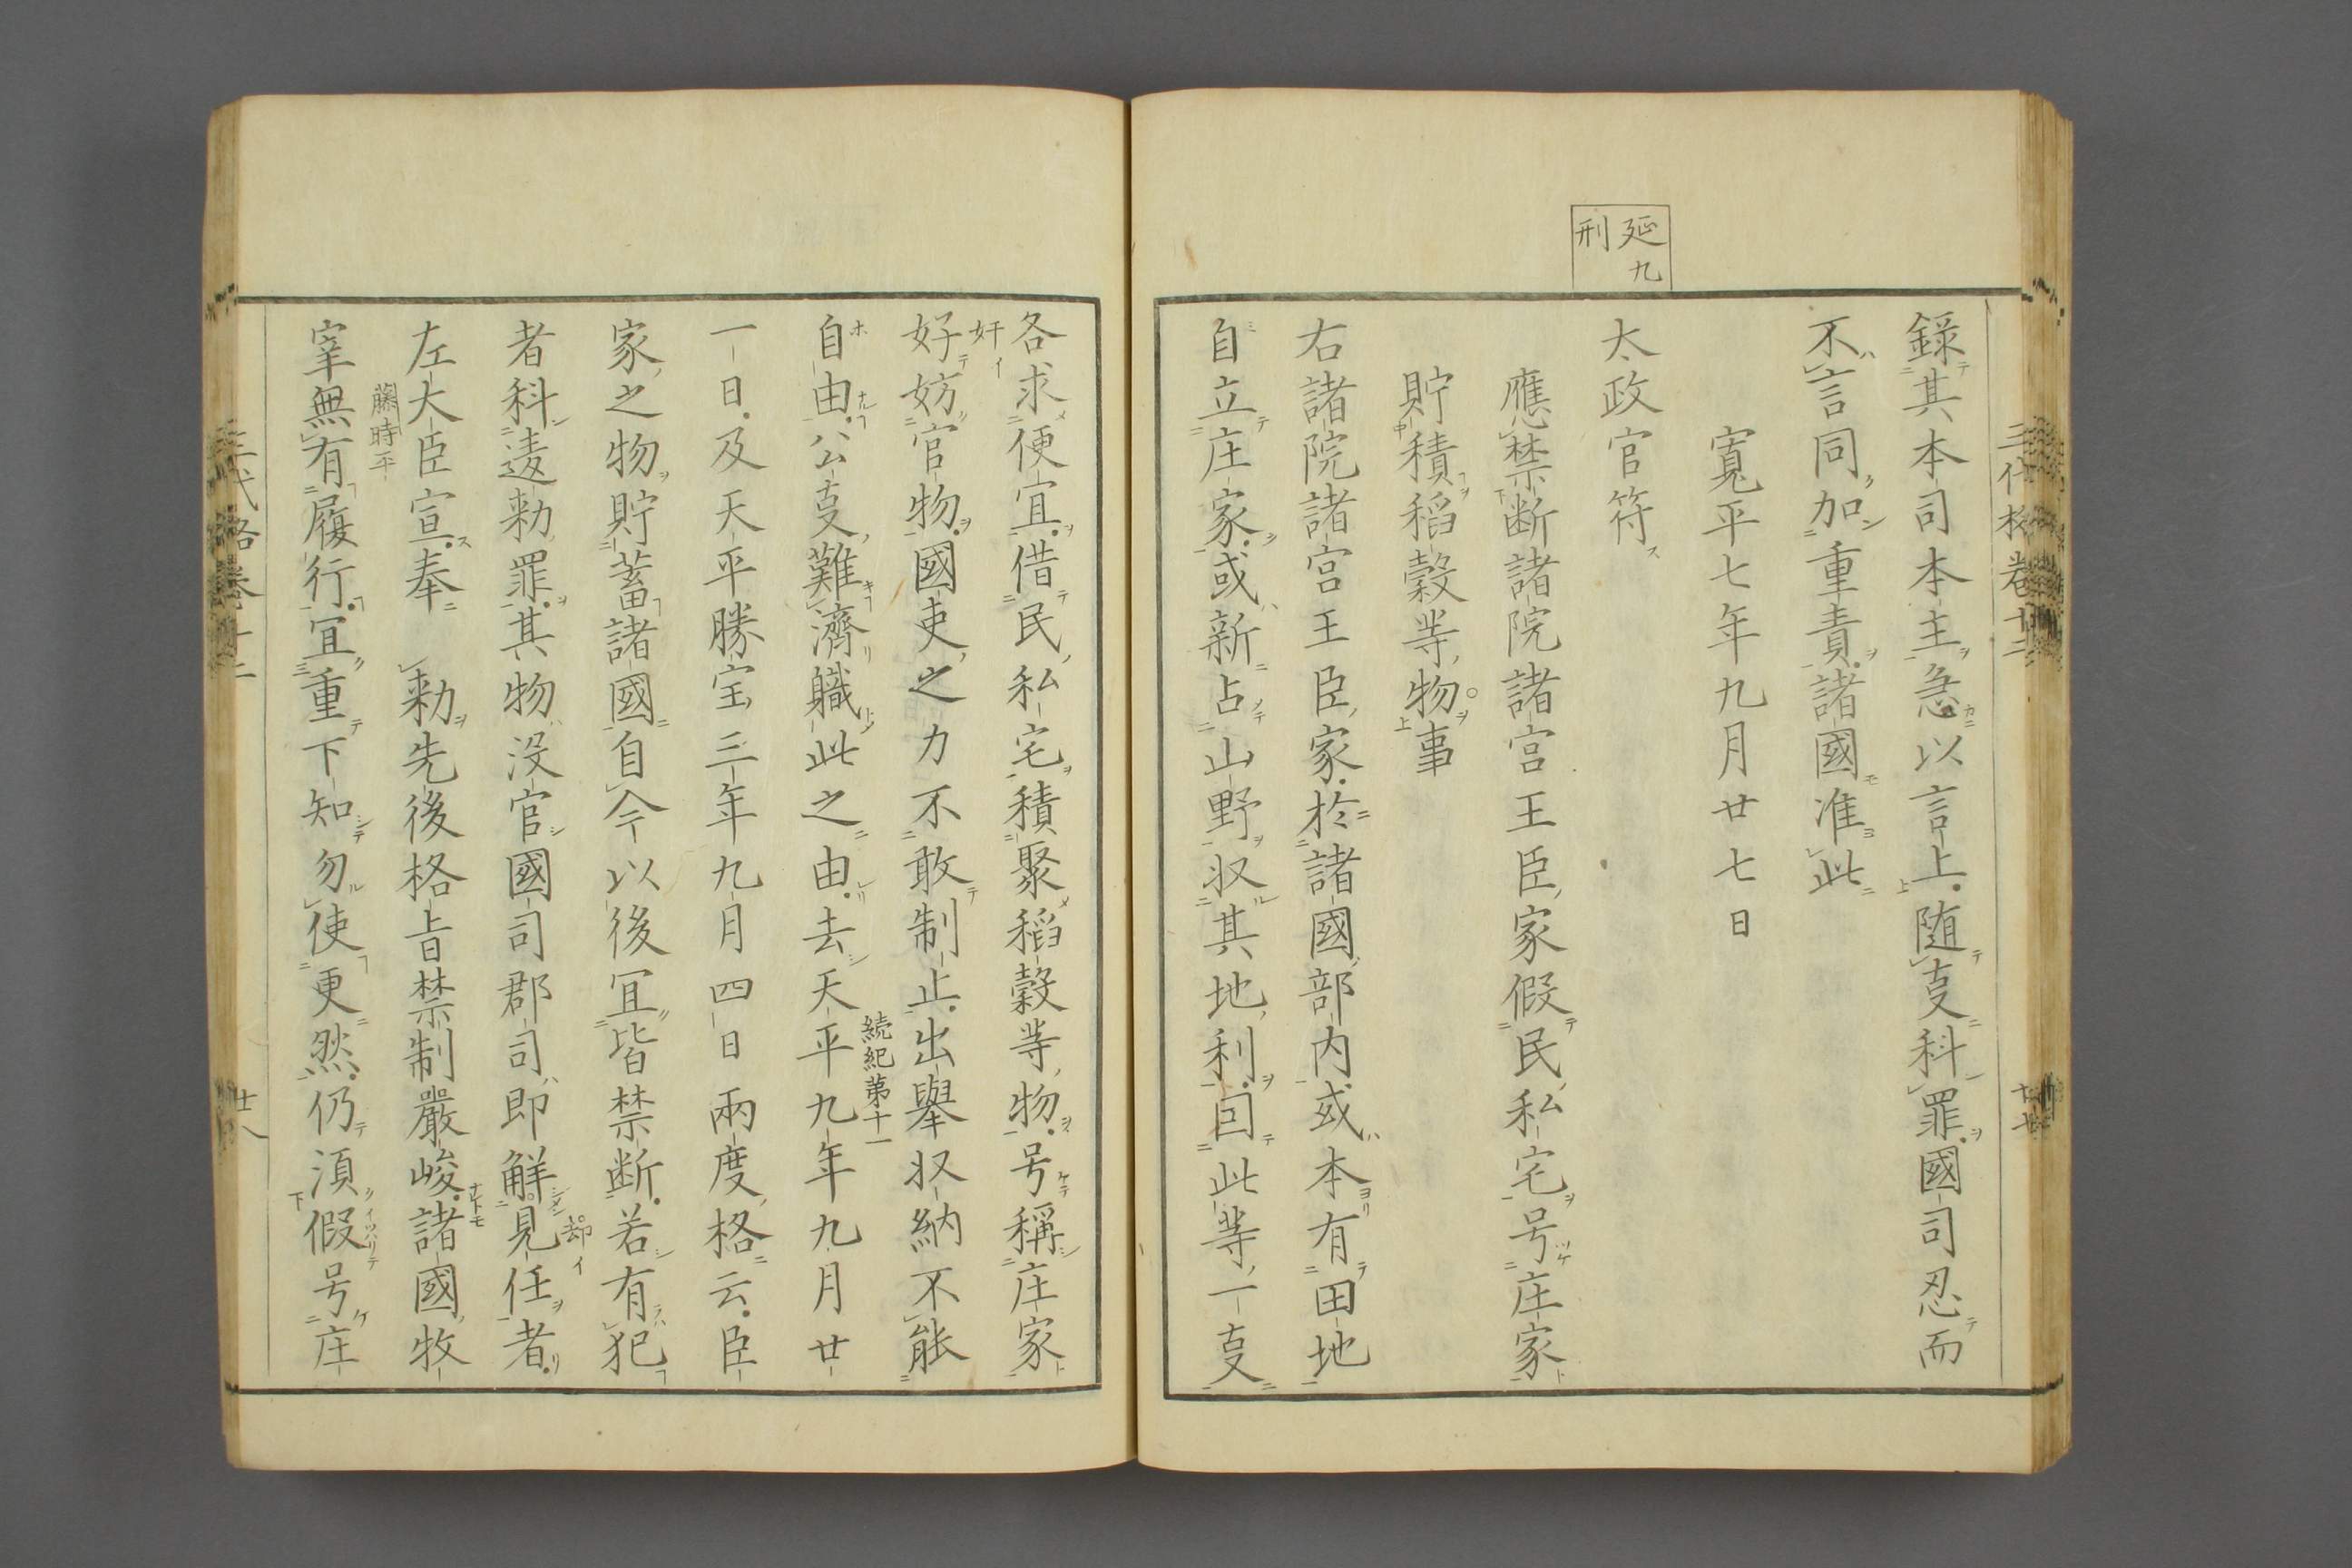 延九
刑
録其本司本主急以言上随㕝科罪國司忍而
不言同加重責諸國准此
寛平七年九月廿七日
太政官符
應禁断諸院諸宮王臣家假民私宅号庄家
貯積稻穀等物事
右諸院諸宮王臣家於諸國部内或本有田地
自立庄家或新占山野収其地利囙此等一㕝
各求便宜借民私宅積聚稻穀等物号稱庄家
奸イ
好妨官物國吏之力不敢制止出舉収納不能
自由公㕝難濟軄此之由去天平九年九月廿
続紀第十一
一日及天平勝宝三年九月四日兩度格云臣
家之物貯蓄諸國自今以後冝皆禁断若有犯
者科違勅罪其物没官國司郡司即解見任者
却イ
左大臣宣奉　勅先後格旨禁制嚴峻諸國牧
藤時平
宰無有履行冝重下知勿使更然仍湏假号庄